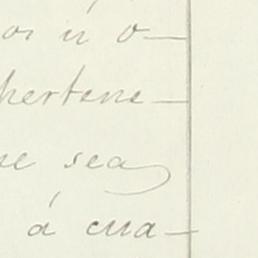 os ú o-
pertene-
se sea
á cua-